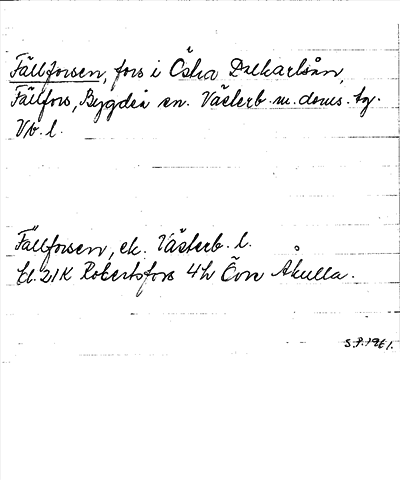 Fällforsen, fors i Östra Dalkarlsån,
Fällfors, Bygdeå sn. Västerb. m. doms. tg.
Vb. l.
Fällforsen, ek. Västerb. l.
bl. 21K Robertsfors 4h Övre Åkulla.
S.P. 1961.